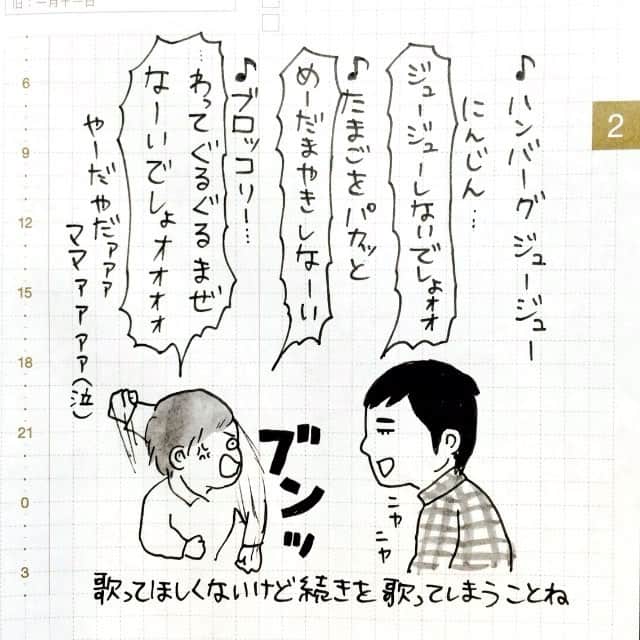 旧:一月十一日
2
♪ハンバーグジュージュー
にんじん…
ジュージューしないでしょォォ
♪たまごをパカッと
めーだまやきしなーい
♪ブロッコリー…
…わってぐるぐるまぜ
なーいでしょォォォォ
やーだやだァァァ
ママァァァァ(泣)
ブンッ
ニヤ
ニヤ
6
9
12
15
18
21
0
3
歌ってほしくないけど続きを歌ってしまうことね